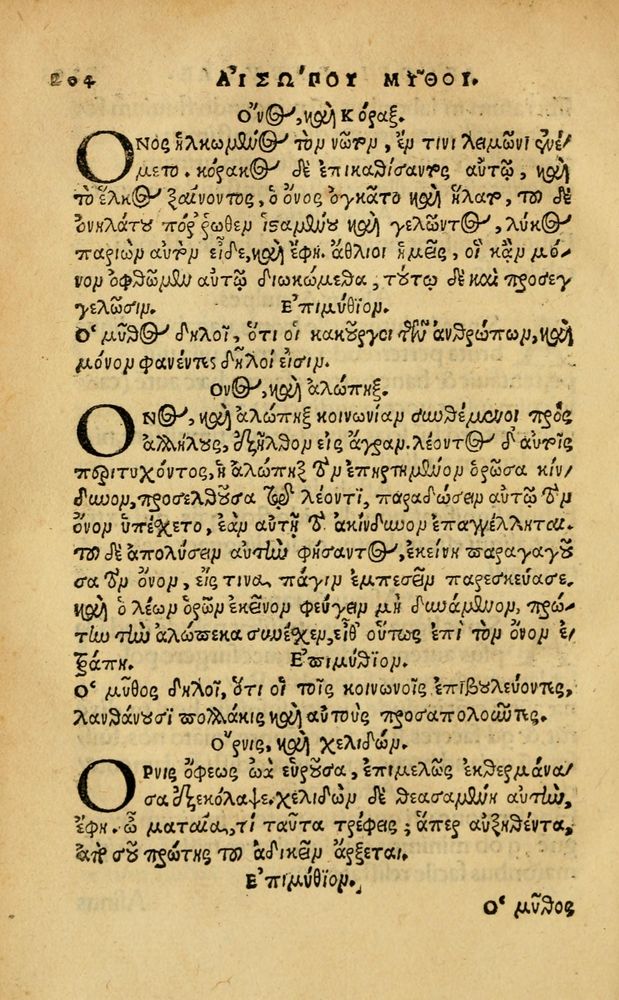 204 ΑἸΣΏΠΟΥ ΜΥ͂ΘΟΙ.
Ὄνος, καὶ Κόραξ.
ΟΝος ἡλκωμένος τὸν νῶτον, ἔν τινι λειμῶνι ἐνέ-
μετο. κόρακος δὲ ἐπικαθίσαντος αὐτῷ, καὶ
τὸ ἕλκος ξαίνοντος, ὁ ὄνος ὀγκᾶτο καὶ ἥλατο, τοῦ δὲ
ὀνηλάτου πόῤῥωθεν ἱσαμένου καὶ γελῶντος, λύκος
παριὼν αὐτὸν εἶδε, καὶ ἔφη. ἄθλιοι ἡμεῖς, οἳ κᾂν μό-
νον ὀφθῶμεν αὐτῷ διωκώμεθα, τούτῳ δὲ καὶ προσεγ
γελῶσιν. Ἐπιμύθιον.
Ὁ μῦθος δηλοῖ, ὅτι οἱ κακοῦργοι τῶν ἀνθρώπων, καὶ
μόνον φανέντες δῆλοί εἰσιν.
Ονος, καὶ ἀλώπηξ.
ΟΝος, καὶ ἀλώπηξ κοινωνίαν συνθέμενοι πρὸς
ἀλλήλους, ἐξῆλθον εἰς ἄγραν. λέοντος δ' αὐτοῖς
περιτυχόντος, ἡ ἀλώπηξ τὸν ἐπηρτημένον ὁρῶσα κίν-
δυνον, προσελθοῦσα τῷ λέοντι, παραδώσειν αὐτῷ τὸν
ὄνον ὑπέχετο, ἐὰν αὐτῇ τὸ ἀκίνδυνον ἐπαγγέλληται.
τοῦ δὲ ἀπολύσειν αὐτὴν φήσαντος, ἐκείνη παραγαγοῦ
σα τὸν ὄνον, εἴς τινα πάγην ἐμπεσεῖν παρεσκεύασε.
καὶ ὁ λέων ὁρῶν ἐκεῖνον φεύγειν μὴ δυνάμενον, πρώ-
την τὴν ἀλώπεκα συνέχεν, εἶθ' οὕτως ἐπὶ τὸν ὄνον ἐ-
τράπη. Ἐπιμύθιον.
Ὁ μῦθος δηλοῖ, ὅτι οἱ τοῖς κοινωνοῖς ἐπιβουλεύοντες,
λανθάνουσι πολλάκις καὶ αὑτοὺς προσαπολοῦντες.
Ὄρνις, καὶ χελιδών.
ΟΡνις ὄφεως ὠὰ εὑροῦσα, ἐπιμελῶς ἐκθερμάνα-
σα ἐξεκόλαψε. χελιδὼν δὲ θεασαμένη αὐτὴν,
ἔφη. ὦ ματαία, τί ταῦτα τρέφεις; ἅπερ αὐξηθέντα,
ἀπὸ σοῦ πρώτης τοῦ ἀδικεῖν ἄρξεται.
Ἐπιμύθιον.
Ὁ μῦθος